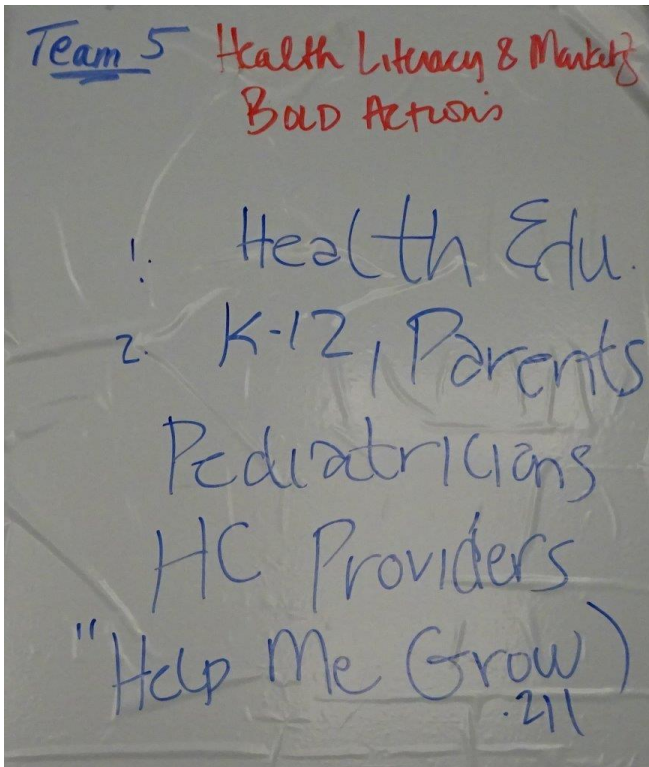 Team 5 Health Literacy & Marketg
BOLD Actions
1. Health Edu.
2. K-12, Parents
Pediatricians
HC Providers
"Help Me Grow)
.211